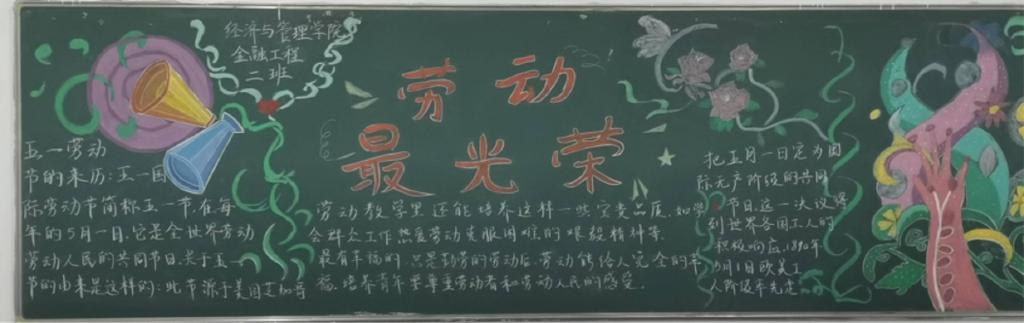 经济与管理学院
金融工程
二班
劳动
最光荣
五一劳动
节的来历:五一国
际劳动节简称五一节.在每
年的5月一日.它是全世界劳动
劳动人民的共同节日.关于五一
节的由来是这样的:此节源于美国芝加哥
劳动教学里还能培养这样一些宝贵品质.如学
会群众工作热爱劳动克服困难的艰毅精神等.
最有幸福的.只是勤劳的劳动后.劳动能给人完全的幸
福.培养青年尊重劳动者和劳动人民的感受.
把五月一日定为国
际无产阶级的共同
节日这一决议得
到世界各国工人的
积极响应.1890年
5月1日欧美工
人阶级率先走